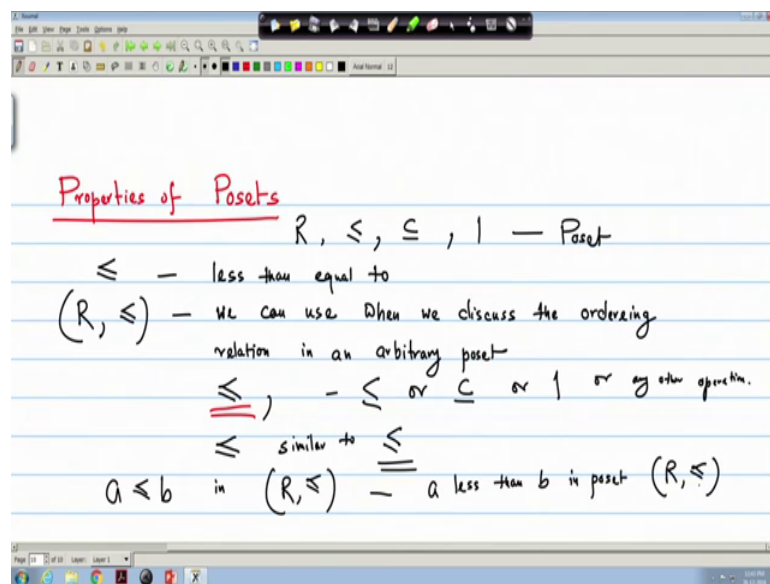 Journal
File Edit View Page Tools Options Help
Arial Normal 12
Properties of Posets
R, ≤, ⊆, | — Poset
≼ — less than equal to
(R, ≼) — We can use When we discuss the ordereing
relation in an arbitrary poset
≼, - ≤ or ⊆ or | or any other operation.
≼ similar to ≤
a ≼ b in (R, ≼) — a less than b in poset (R, ≼)
Page 10 of 10 Layer: Layer 1